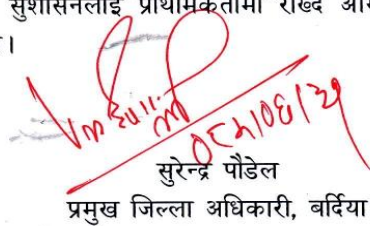 सुशासनलाई प्राथमिकतामा राख्दै
।
सुरेन्द्र पौडेल
प्रमुख जिल्ला अधिकारी, बर्दिया